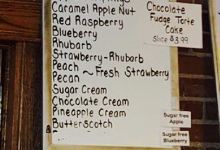 Caramel Apple Nut
Red Raspberry
Blueberry
Rhubarb
Strawberry-Rhubarb
Peach ~ Fresh Strawberry
Pecan
Sugar Cream
Chocolate Cream
Pineapple Cream
Butterscotch
Chocolate
Fudge Torte
Cake
Slice $3.99
Sugar free
Apple
Sugar free
Blueberry